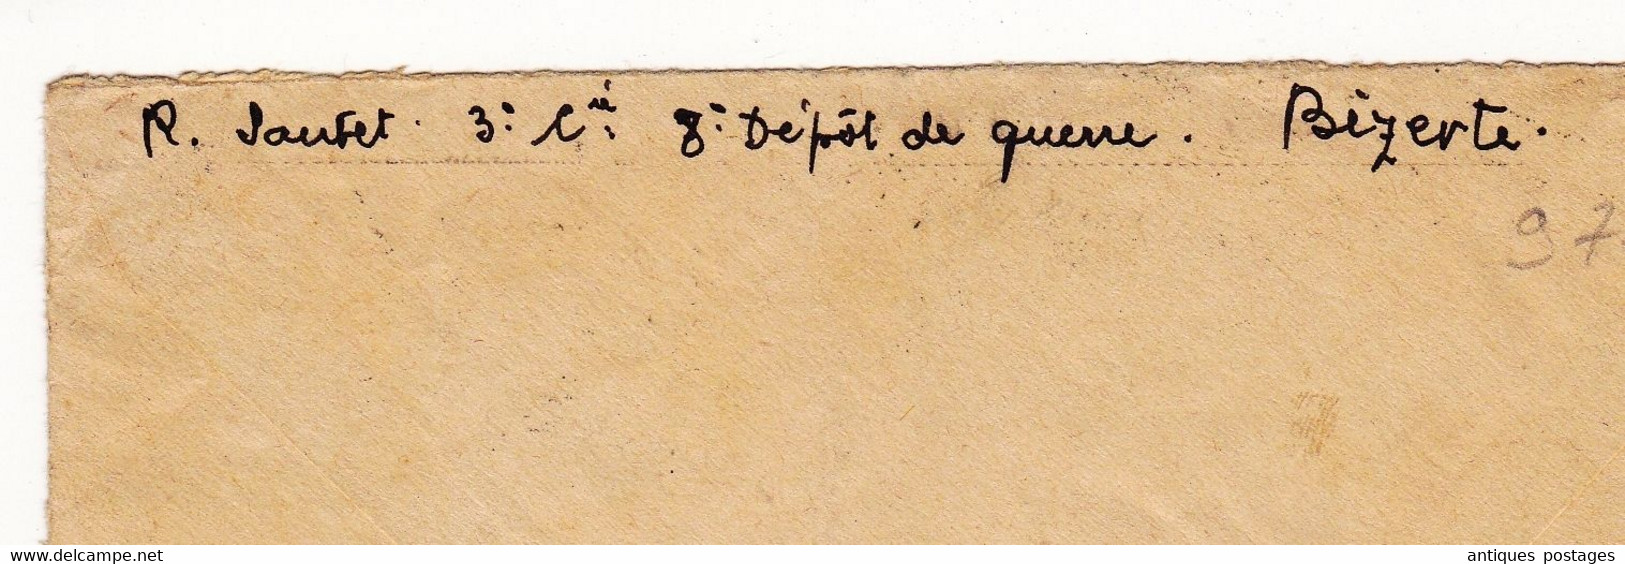 R. Saubet. 3e Cie 8e Dépôt de guerre. Bizerte.
97
www.delcampe.net
antiques postages